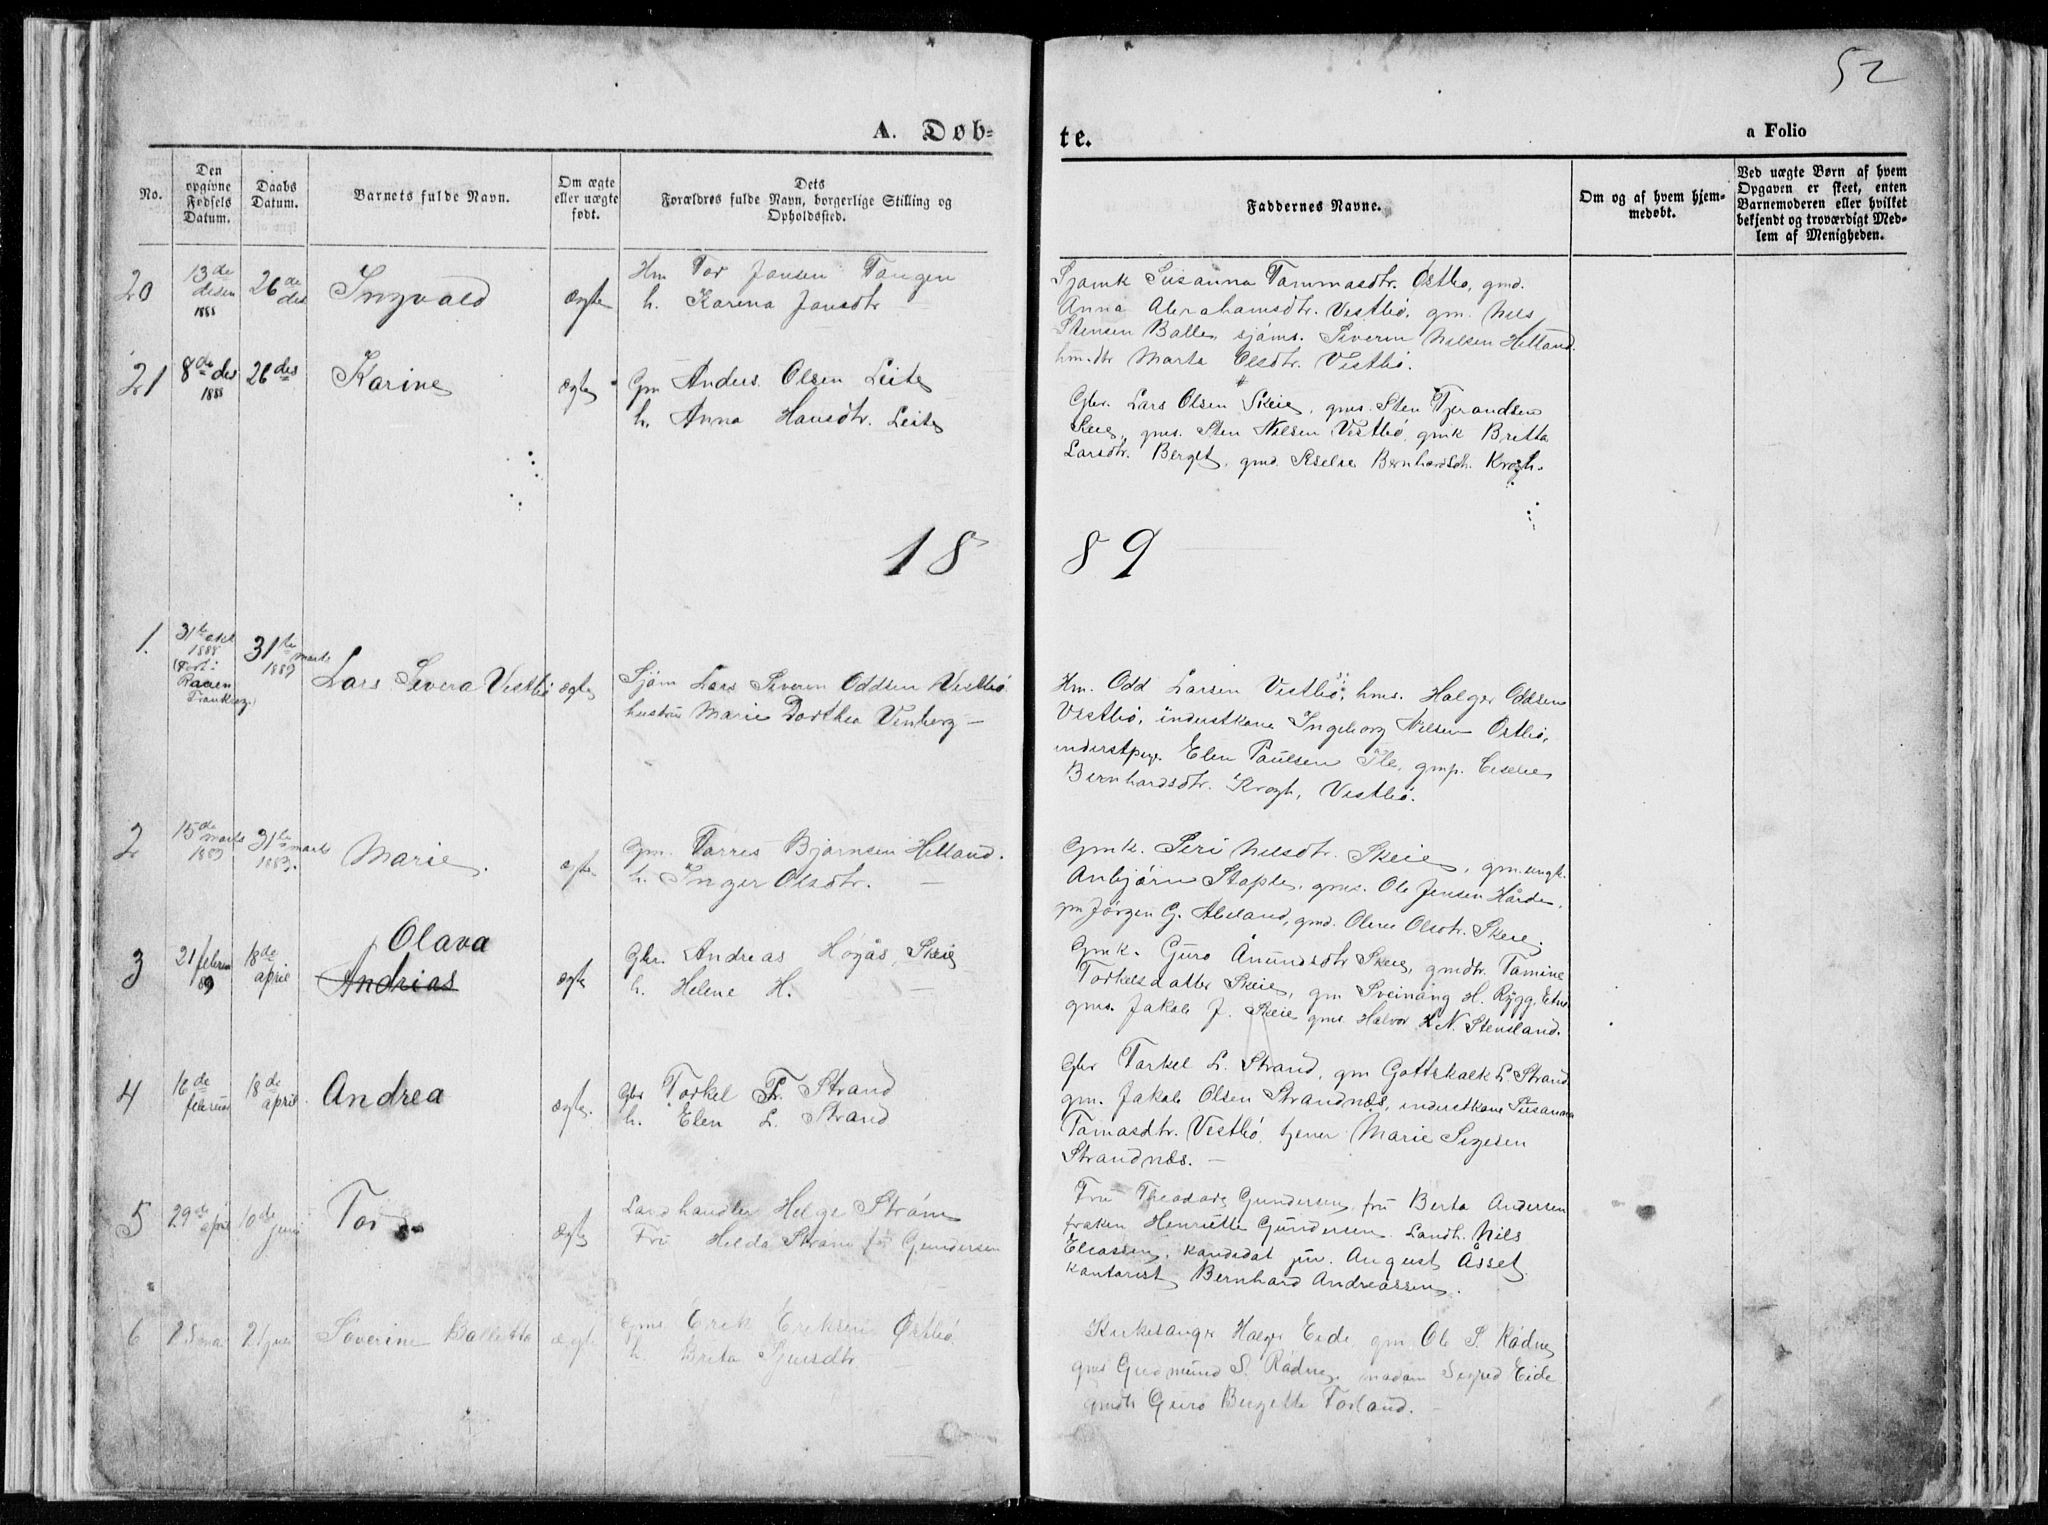 52
A. Døb-
te.
a Folio
No.
Den
opgivne
Fødsels
Datum.
Daabs
Datum.
Barnets fulde Navn.
Om ægte
eller uægte
født.
Dets
Forældres fulde Navn, borgerlige Stilling og
Opholdssted.
Faddernes Navne.
Om og af hvem hjem-
medøbt.
Ved uægte Børn af hvem
Opgaven er skeet, enten
Barnemoderen eller hvilket
bekjendt og troværdigt Med-
lem af Menigheden.
20
13de
desem
1888
26de
des
Ingvald
ægte
Hm Tor Jansen Tangen
h. Karina Jansdtr
Sjømk Susanna Tammasdtr. Østbø, gmd.
Anna Abrahamsdtr. Vestbø, gm. Nils
Stensen Balle, sjøms. Severin Nilsen Helland
hmdtr Marta Olsdtr. Vestbø.
21
8de des
1888
26 des
Karine
ægte
Gm Anders Olsen Leite
h. Anna Hansdtr. Leite
Gbr. Lars Olsen Skeie, gms. Sten Tjerandsen
Skeie, gms. Sten Nilsen Vestbø, gmk Britta
Larsdtr. Berget, gmd. Bernhardsdtr. Krogh.
18
89
1.
31te
1888
Frankrig)
31te marts
1889
Lars Severin Vestbø
ægte
Sjøm Lars Severin Oddsen Vestbø
hustru Marie Dorthea Venberg —
Hm. Odd Larsen Vestbø, hms. Halger Oddsen
Vestbø, inderstkone Ingeborg Nilsen Østbø,
inderstpige Elen Paulsen gmp.
Bernhardsdtr. Krogh, Vestbø.
2
15de
marts
1889
31te marts
1889.
Marie.
ægte
Gm. Torres Bjørnsen Helland.
h. Inger Olsdtr. —
Gmk. Siri Nilsdtr. Skeie, gm.ungk.
Anbjørn Staple, gms. Ole Jensen
gm Jørgen G. Aleland, gmd. Oline Olsdtr. Skeie.
3
21/febru
89
18de
april
Olava
Andrias
ægte
Gbr. Andreas Høyås, Skeie
h. Helene H. —
Gmk. Guro Anundsdtr Skeie, gmdtr. Tamine
Torkelsdatter Skeie, gm Sveinång H. Rygg. Etne
gms. Jakob J. Skeie gms Halvor N. Stensland.
4
16de
februar
18de
april
Andrea
ægte.
Gbr Torkel T. Strand
h. Elen L. Strand
Gbr Tarkel L. Strand, gm Gottskalk L. Strand
gm. Jakob Olsen Strandnæs, inderstkone Susanna
Tamasdtr. Vestbø, tjener Marie
Strandnæs. —
5
29de
april
10de
juni
Tor
ægte
Landhandler Helge Strøm
Fru Hilda Strøm før Gundersen
Fru Theodora Gundersen, fru Berta Andersen
frøken Henriette Gundersen. Landh. Nils
Eliassen, kandidat jur. August Åsset
kantorist Bernhard Andreassen.
6
Severine Balletta
ægte
gms Erik Eriksen Østbø
h. Brita Sjursdtr
Kirkesanger Halge Eide gm Ole S. Rådne
gms Gudmund S. Rådne, madam Eide
gmdtr Guro Birgitte Torland.